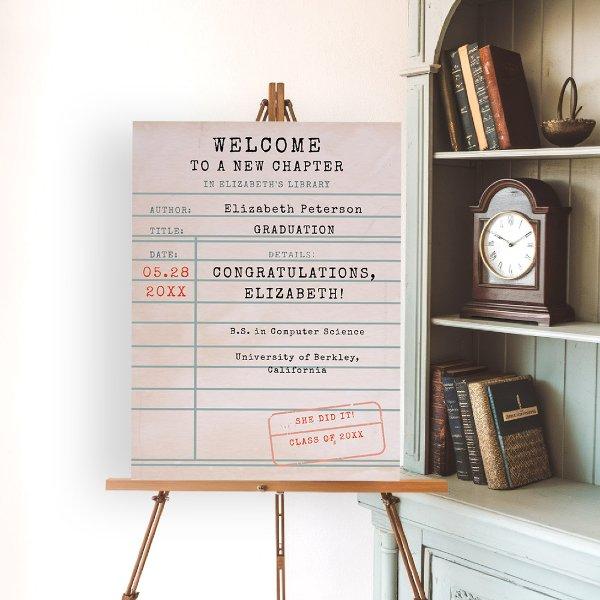 WELCOME
TO A NEW CHAPTER
IN ELIZABETH'S LIBRARY
AUTHOR: Elizabeth Peterson
TITLE: GRADUATION
DATE: DETAILS:
05.28 CONGRATULATIONS,
20XX ELIZABETH!
B.S. in Computer Science
University of Berkley,
California
SHE DID IT!
CLASS OF 20XX